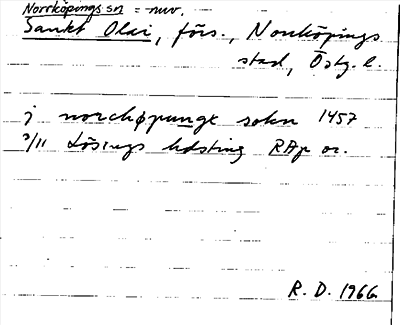 Norrköpings sn = nuv.
Sankt Olai, förs., Norrköpings
stad, Östg. l.
j norchøpunge sokn 1457
3/11 Lösings hdsting RAp or.
R. D. 1966